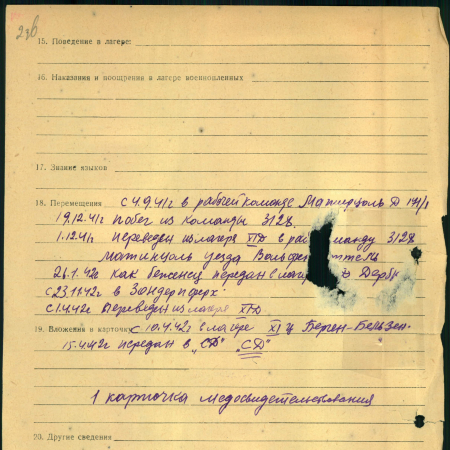 236
15. Поведение в лагере:
16. Наказания и поощрения в лагере военнопленных
17. Знание языков
18. Перемещения с 4.9.41г в рабочей команде Д
19.12.41г побег из команды 3128
1.12.41г переведен из лагеря XID в раб 3128
уезда
26.1.42г как беженец передан в
с 23.1.42г в
с 1.4.42г переведен из лагеря XID
19. Вложения в карточку с 10.4.42г в лагере XI ц Берген-Бельзен.
15.4.42г передан в „СД" „СД"
1 карточка медосвидетельствования
20. Другие сведения